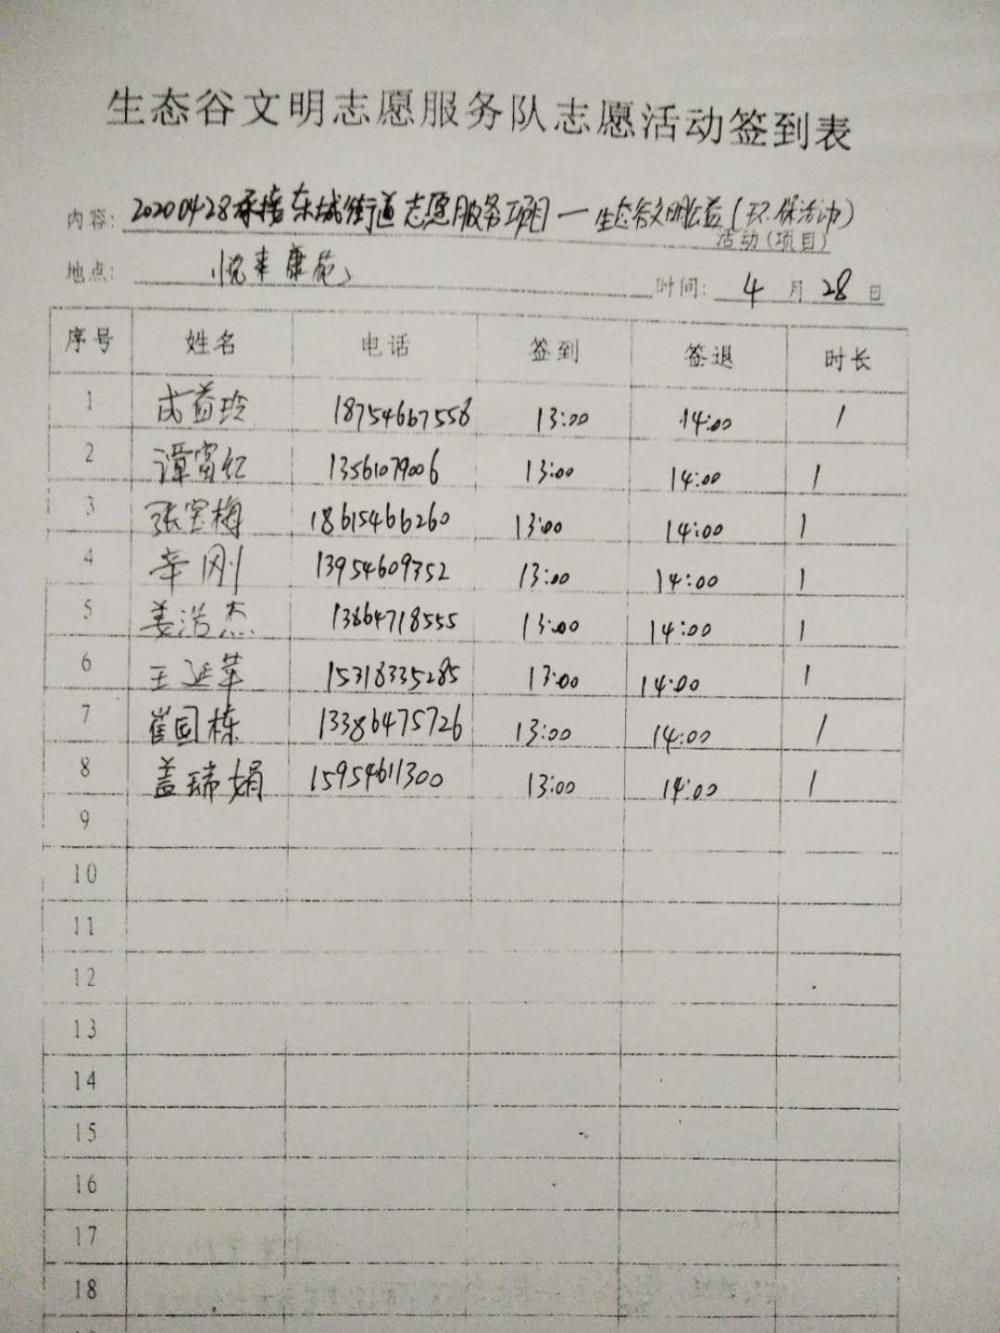 生态谷文明志愿服务队志愿活动签到表
内容: 20200428承接东城街道志愿服务项目—生态谷文明公益(环保活动)
活动(项目)
地点: 悦来康苑 时间: 4月28日
序号 姓名 电话 签到 签退 时长
1 成首玲 18754667558 13:00 14:00 1
2 谭富红 13561079006 13:00 14:00 1
3 张宝梅 18615466260 13:00 14:00 1
4 辛刚 13954609352 13:00 14:00 1
5 姜浩杰 13864718555 13:00 14:00 1
6 王延苹 15318335285 13:00 14:00 1
7 崔国栋 13386475726 13:00 14:00 1
8 盖瑞娟 15954611300 13:00 14:00 1
9
10
11
12
13
14
15
16
17
18